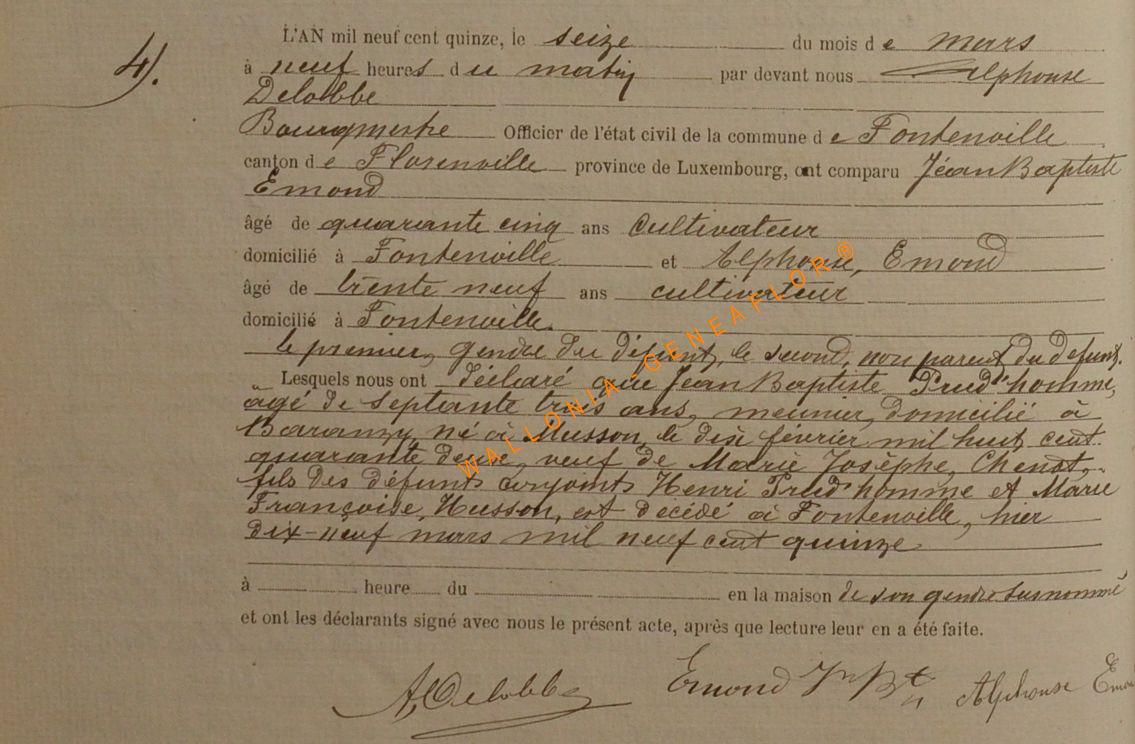 4).
L'AN mil neuf cent quinze, le seize du mois de mars
à neuf heures du matin par devant nous Alphonse
Delobbe
Bourgmestre Officier de l'état civil de la commune de Fontenoille
canton de Florenville province de Luxembourg, ont comparu Jean Baptiste
Emond
âgé de quarante cinq ans cultivateur
domicilié à Fontenoille et Alphonse, Emond
âgé de trente neuf ans cultivateur
domicilié à Fontenoille.
le premier, gendre du défunt, le second, non parent du defunt.
Lesquels nous ont déclaré que Jean Baptiste Prud'homme,
agé de septante trois ans, meunier, domicilié à
Baranzy, né à Musson, le dix février mil huit cent
quarante deux, veuf de Marie Josèphe, Chenot,
fils des défunts conjoints Henri Prud'homme et Marie
Françoise, Husson, est décédé à Fontenoille, hier
dix-neuf mars mil neuf cent quinze
à heure du en la maison de son gendre susnommé
et ont les déclarants signé avec nous le présent acte, après que lecture leur en a été faite.
A Delobbe Emond J Bte Alphonse Emon
WALLONIA-GENEAFLOR®